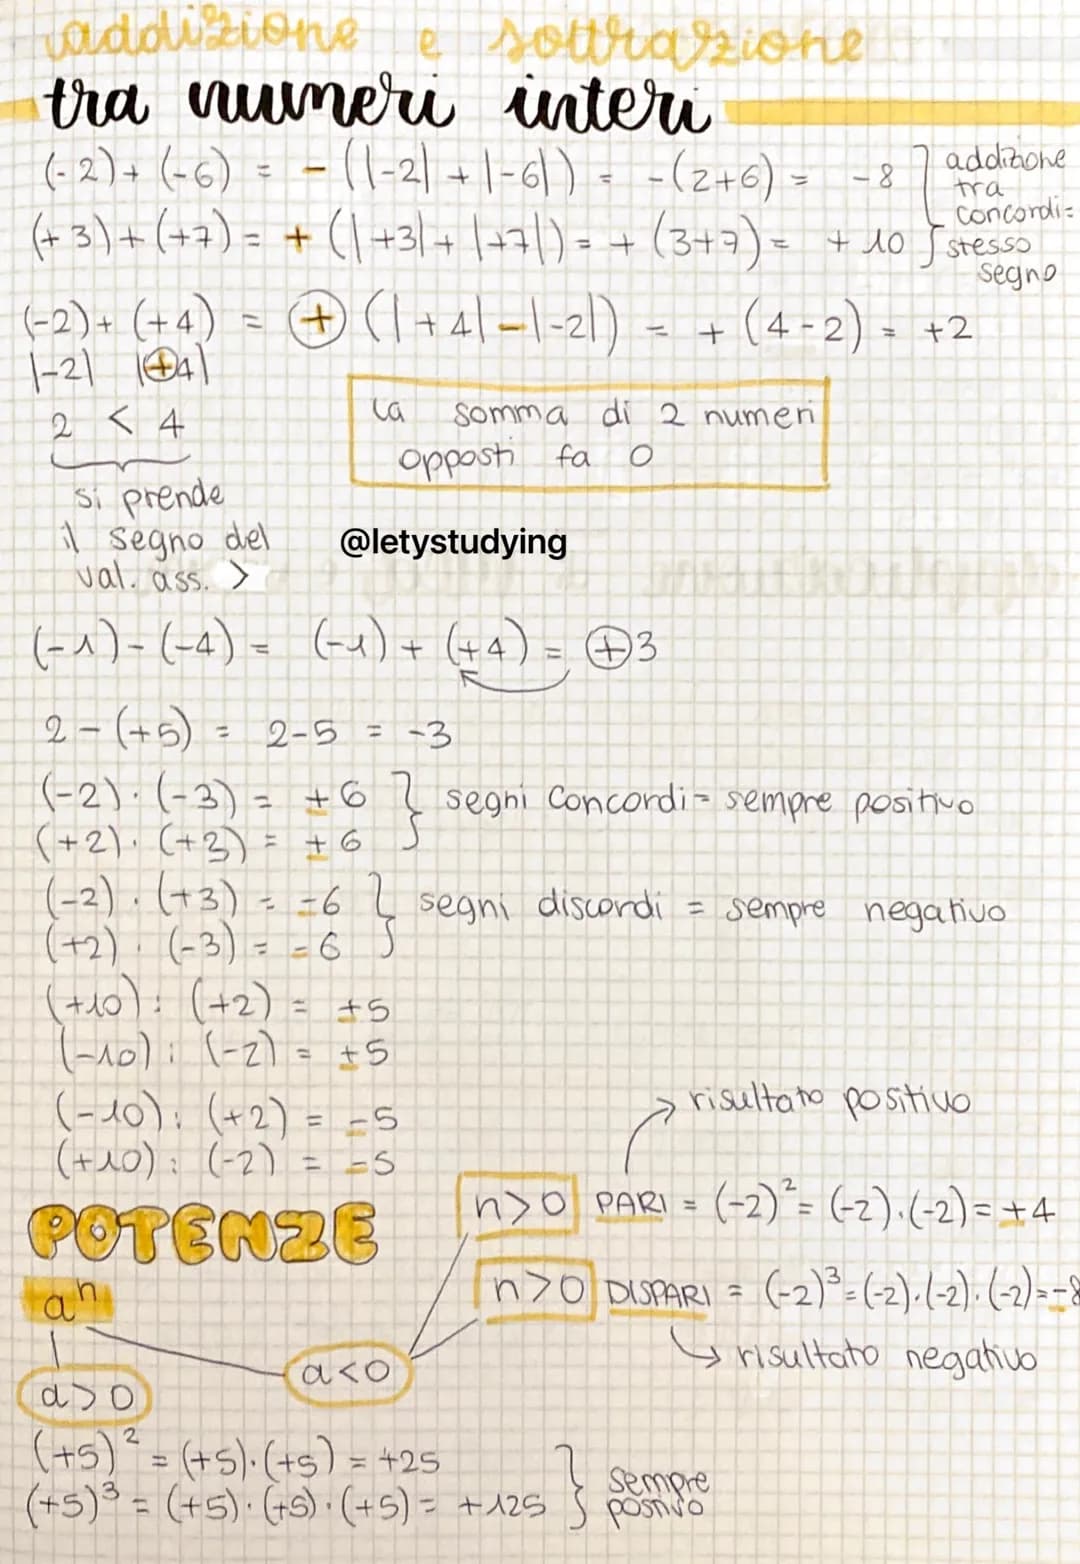 addizione e sottrazione
tra numeri interi
(-2)+ (-6) = - (|-2| + |-6|) = -(2+6) = -8
addizione tra concordi= stesso segno
(+3)+(+7) = + (|+3|+ |+7|) = + (3+7) = + 10
(-2)+ (+4) = + (|+4|-|-2|) = + (4-2) = +2
|-2| |+4|
2 < 4
si prende
il segno del
val. ass. >
la somma di 2 numeri
opposti fa 0
@letystudying
(-1)-(-4) = (-1) + (+4) = +3
2-(+5) = 2-5 = -3
(-2)·(-3) = +6
(+2)·(+3) = +6
segni concordi= sempre positivo
(-2)·(+3) = -6
(+2)·(-3) = -6
segni discordi = sempre negativo
(+10): (+2) = +5
(-10): (-2) = +5
(-10): (+2) = -5
(+10): (-2) = -5
POTENZE
aⁿ
a>0
a<0
risultato positivo
n>0 PARI = (-2)²= (-2)·(-2)= +4
n>0 DISPARI = (-2)³=(-2)·(-2)·(-2)=-8
risultato negativo
(+5)² = (+5)·(+5) = +25
(+5)³ = (+5)·(+5)·(+5)= +125
sempre
positivo